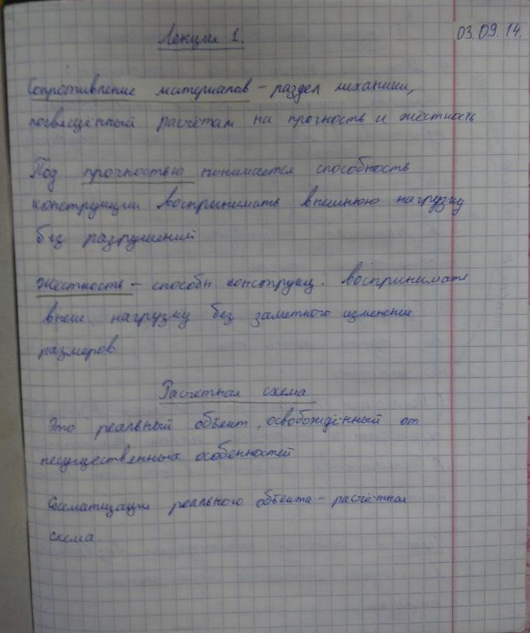 Лекция 1.
03.09.14.
Сопротивление материалов - раздел механики,
посвящённый расчётам на прочность и жёсткость
Под прочностью понимается способность
конструкции воспринимать внешнюю нагрузку
без разрушений
Жёсткость - способн конструкц. воспринимать
внеш. нагрузку без заметного изменения
размеров
Расчётная схема
Это реальный объект, освобождённый от
несущественных особенностей
Схематизация реального объекта - расчётная
схема.